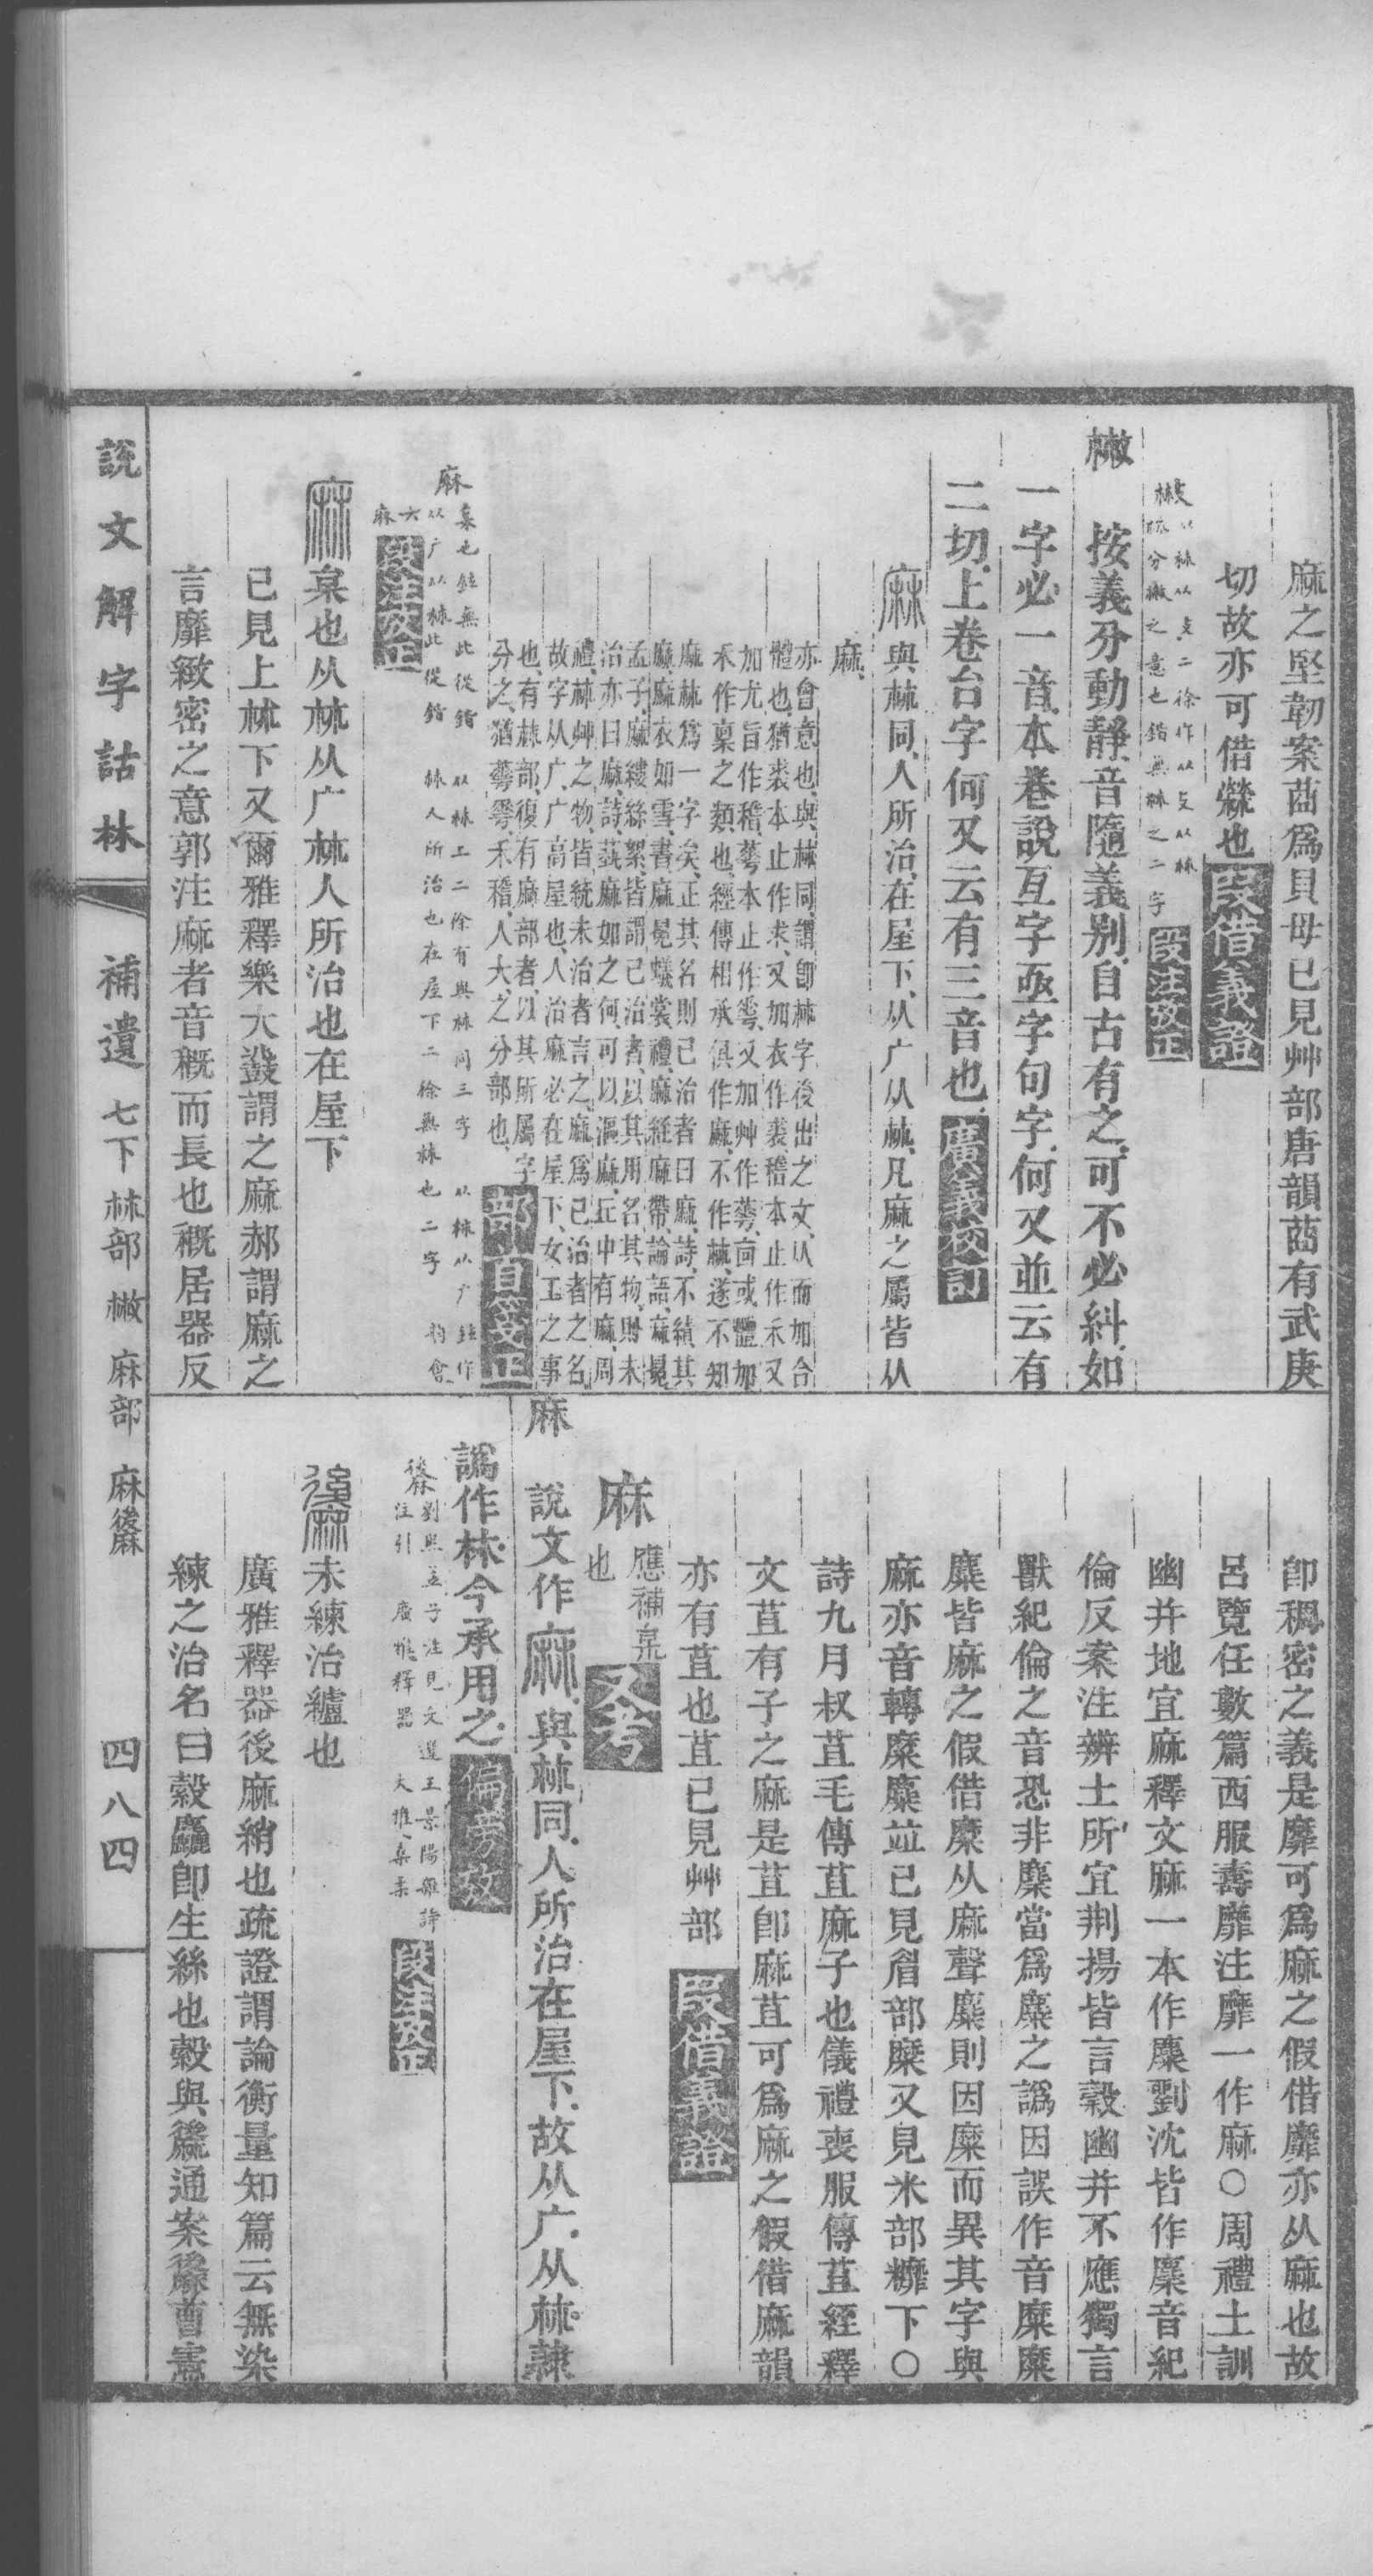 麻之堅韌案莔爲貝母已見艸部唐韻莔有武庚
切故亦可借檾也 段借義證
㪔 按義分動靜音隨義别自古有之可不必糾如
一字必一音本卷說互字亟字句字何又並云有
二切上卷台字何又云有三音也 廣義校訂
麻 與𣏟同人所治在屋下从广从𣏟凡麻之屬皆从
麻
亦會意也與𣏟同謂卽𣏟字後出之文从而加合
體也猶裘本止作求又加衣作裘稽本止作禾又
加尤旨作稽蕚本止作雩又加艸作蕚㐭或體加
禾作稟之類也經傳相承俱作麻不作𣏟遂不知
麻𣏟爲一字矣正其名則已治者曰麻詩不績其
麻麻衣如雪書麻冕蟻裳禮麻絰麻帶論語麻冕
孟子麻縷絲絮皆謂已治者以其用名其物則未
治亦曰麻詩蓺麻如之何可以漚麻丘中有麻周
禮𣏟艸之物皆統未治者言之麻爲已治者之名
故字从广广高屋也人治麻必在屋下女工之事
也有𣏟部復有麻部者以其所屬字
分之猶蕚雩禾稽人大之分部也 部首受正
麻 枲也鉉無此從鍇 从𣏟上二徐有與𣏟同三字 从𣏟从广鉉作
从广从𣏟此從鍇 𣏟人所治也在屋下二徐無𣏟也二字 韵會
六麻 段注攷正
麻 枲也从𣏟从广𣏟人所治也在屋下
已見上𣏟下又爾雅釋樂大鼗謂之麻郝謂麻之
言靡緻密之意郭注麻者音概而長也概居器反
卽稠密之義是靡可爲麻之假借靡亦从麻也故
呂覽任數篇西服壽靡注靡一作麻○周禮土訓
幽并地宜麻釋文麻一本作麋劉沈皆作麇音紀
倫反案注辨土所宜荆揚皆言穀幽并不應獨言
獸紀倫之音恐非麇當爲麋之譌因誤作音糜糜
麋皆麻之假借糜从麻聲麋則因糜而異其字與
麻亦音轉糜麋竝已見眉部糜又見米部糠下○
詩九月叔苴毛傳苴麻子也儀禮喪服傳苴絰釋
文苴有子之麻是苴卽麻苴可爲麻之假借麻韻
亦有苴也苴已見艸部 段借義證
麻 應補枲也
麻 說文作麻與𣏟同人所治在屋下故从广从𣏟隸
譌作林今承用之 偏旁攷
劉熙孟子注見文選王景陽雜詩
注引 廣雅釋器 大雅桑柔 段注攷正
未練治纑也
廣雅釋器後麻綃也疏證謂論衡量知篇云無染
練之治名曰縠麤卽生絲也縠與通案曹憲
說文解字詁林 補遺 七下 𣏟部 㪔 麻部 麻 四八四